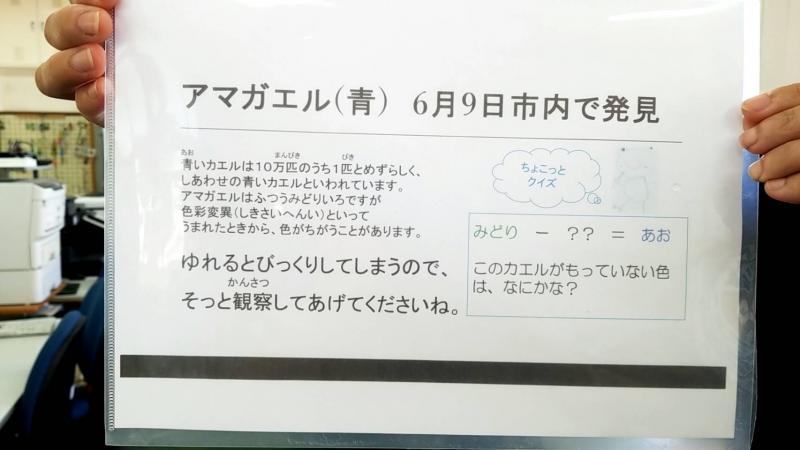 アマガエル(青) 6月9日市内で発見
あお まんびき ぴき
青いカエルは10万匹のうち1匹とめずらしく、
しあわせの青いカエルといわれています。
アマガエルはふつうみどりいろですが
色彩変異(しきさいへんい)といって
うまれたときから、色がちがうことがあります。
ゆれるとびっくりしてしまうので、
かんさつ
そっと観察してあげてくださいね。
ちょこっと
クイズ
みどり − ?? = あお
このカエルがもっていない色
は、なにかな?